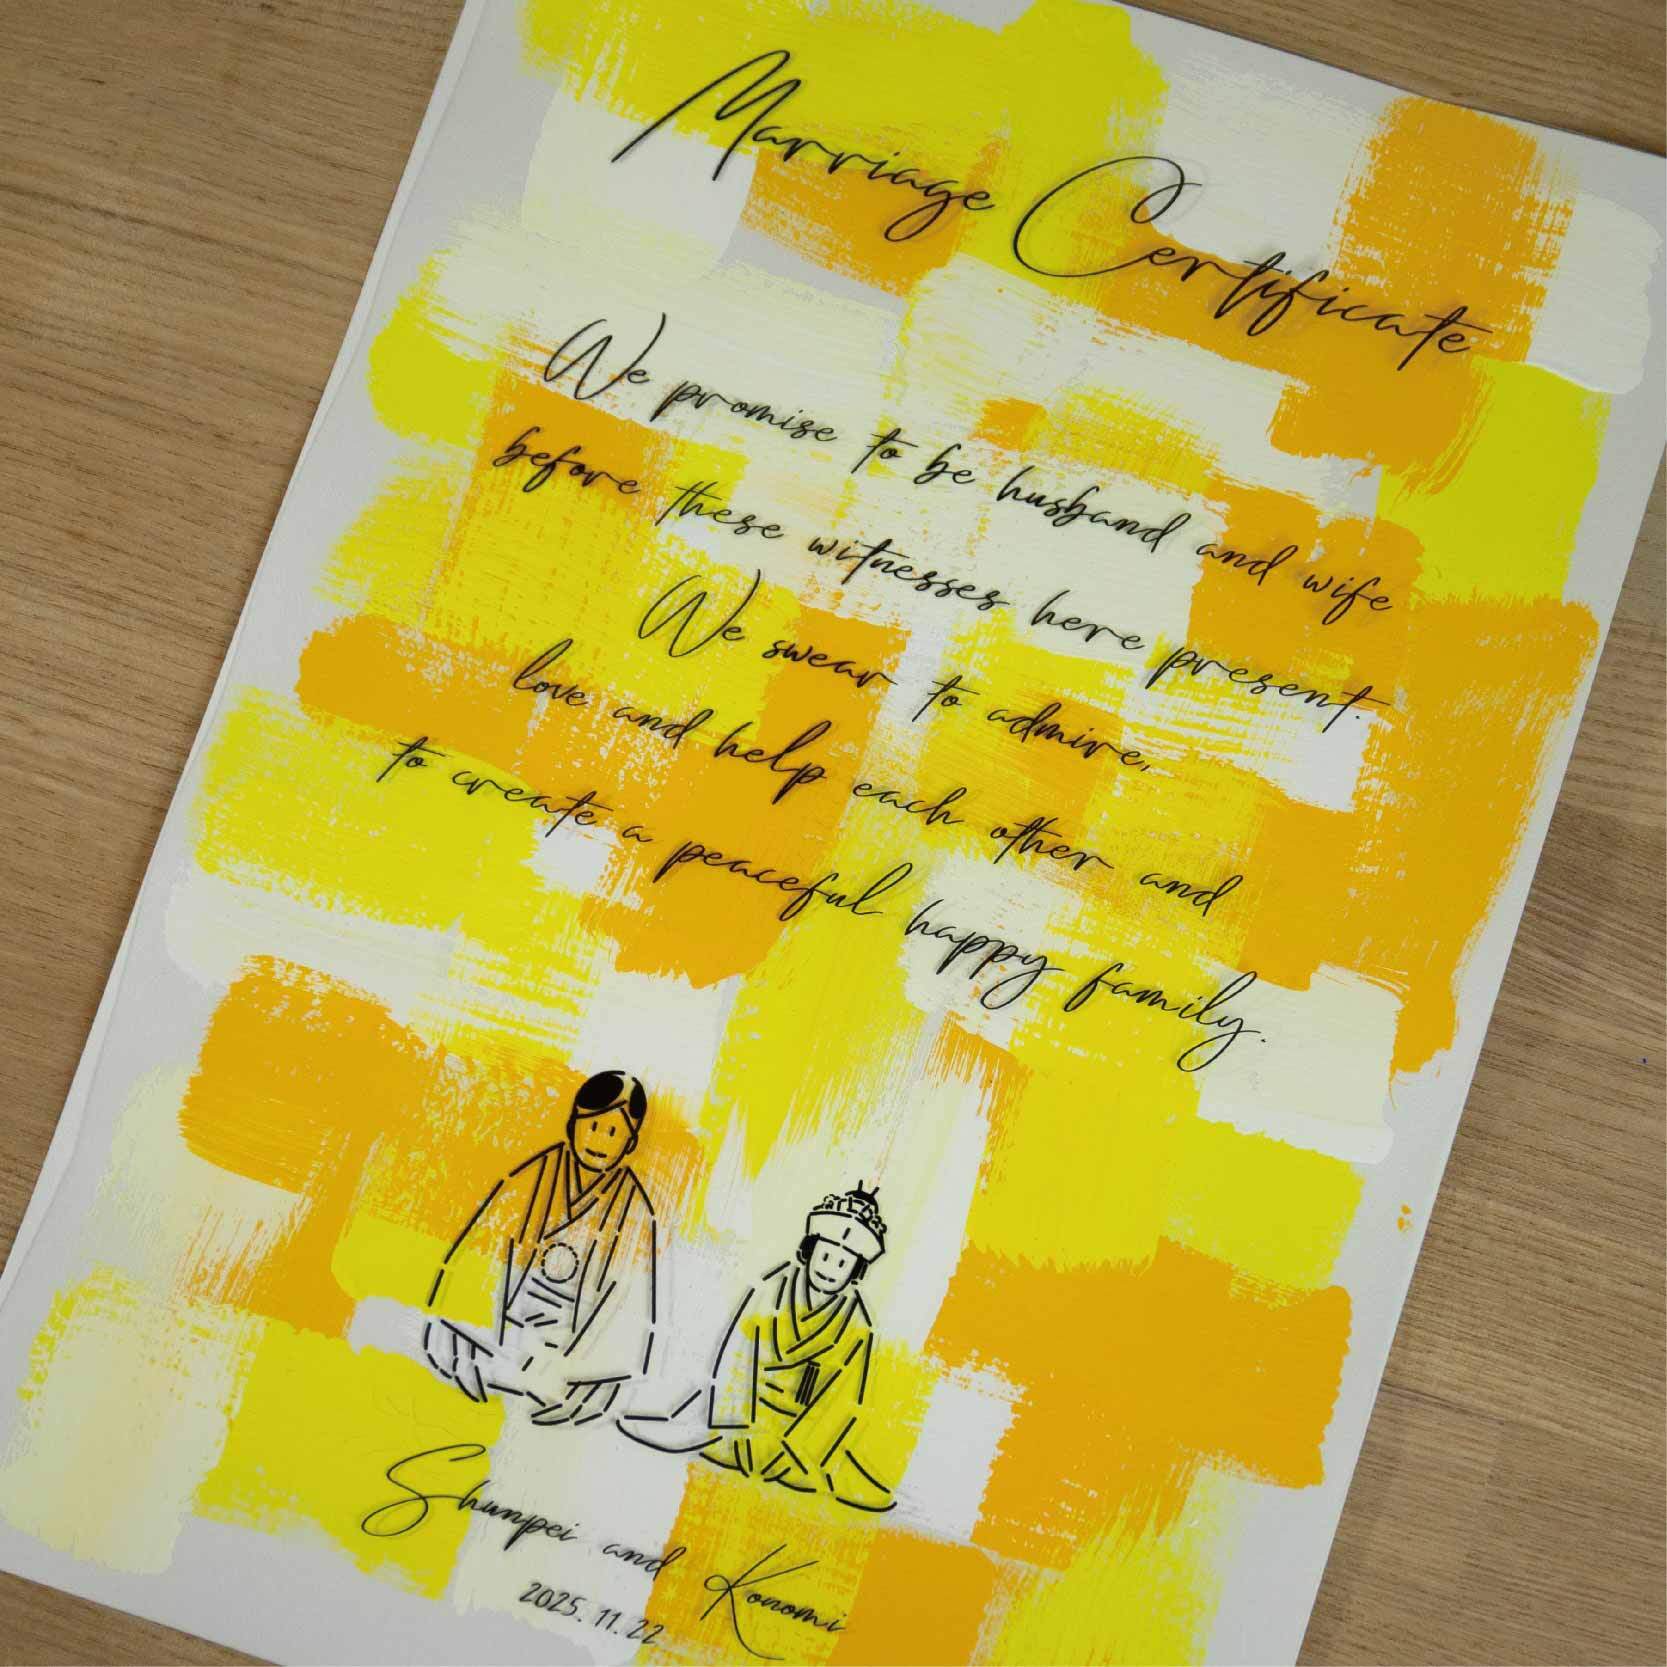 Marriage Certificate
We promise to be husband and wife
before these witnesses here present.
We swear to admire,
love and help each other and
to create a peaceful happy family.
Shunpei and Konomi
2025.11.22